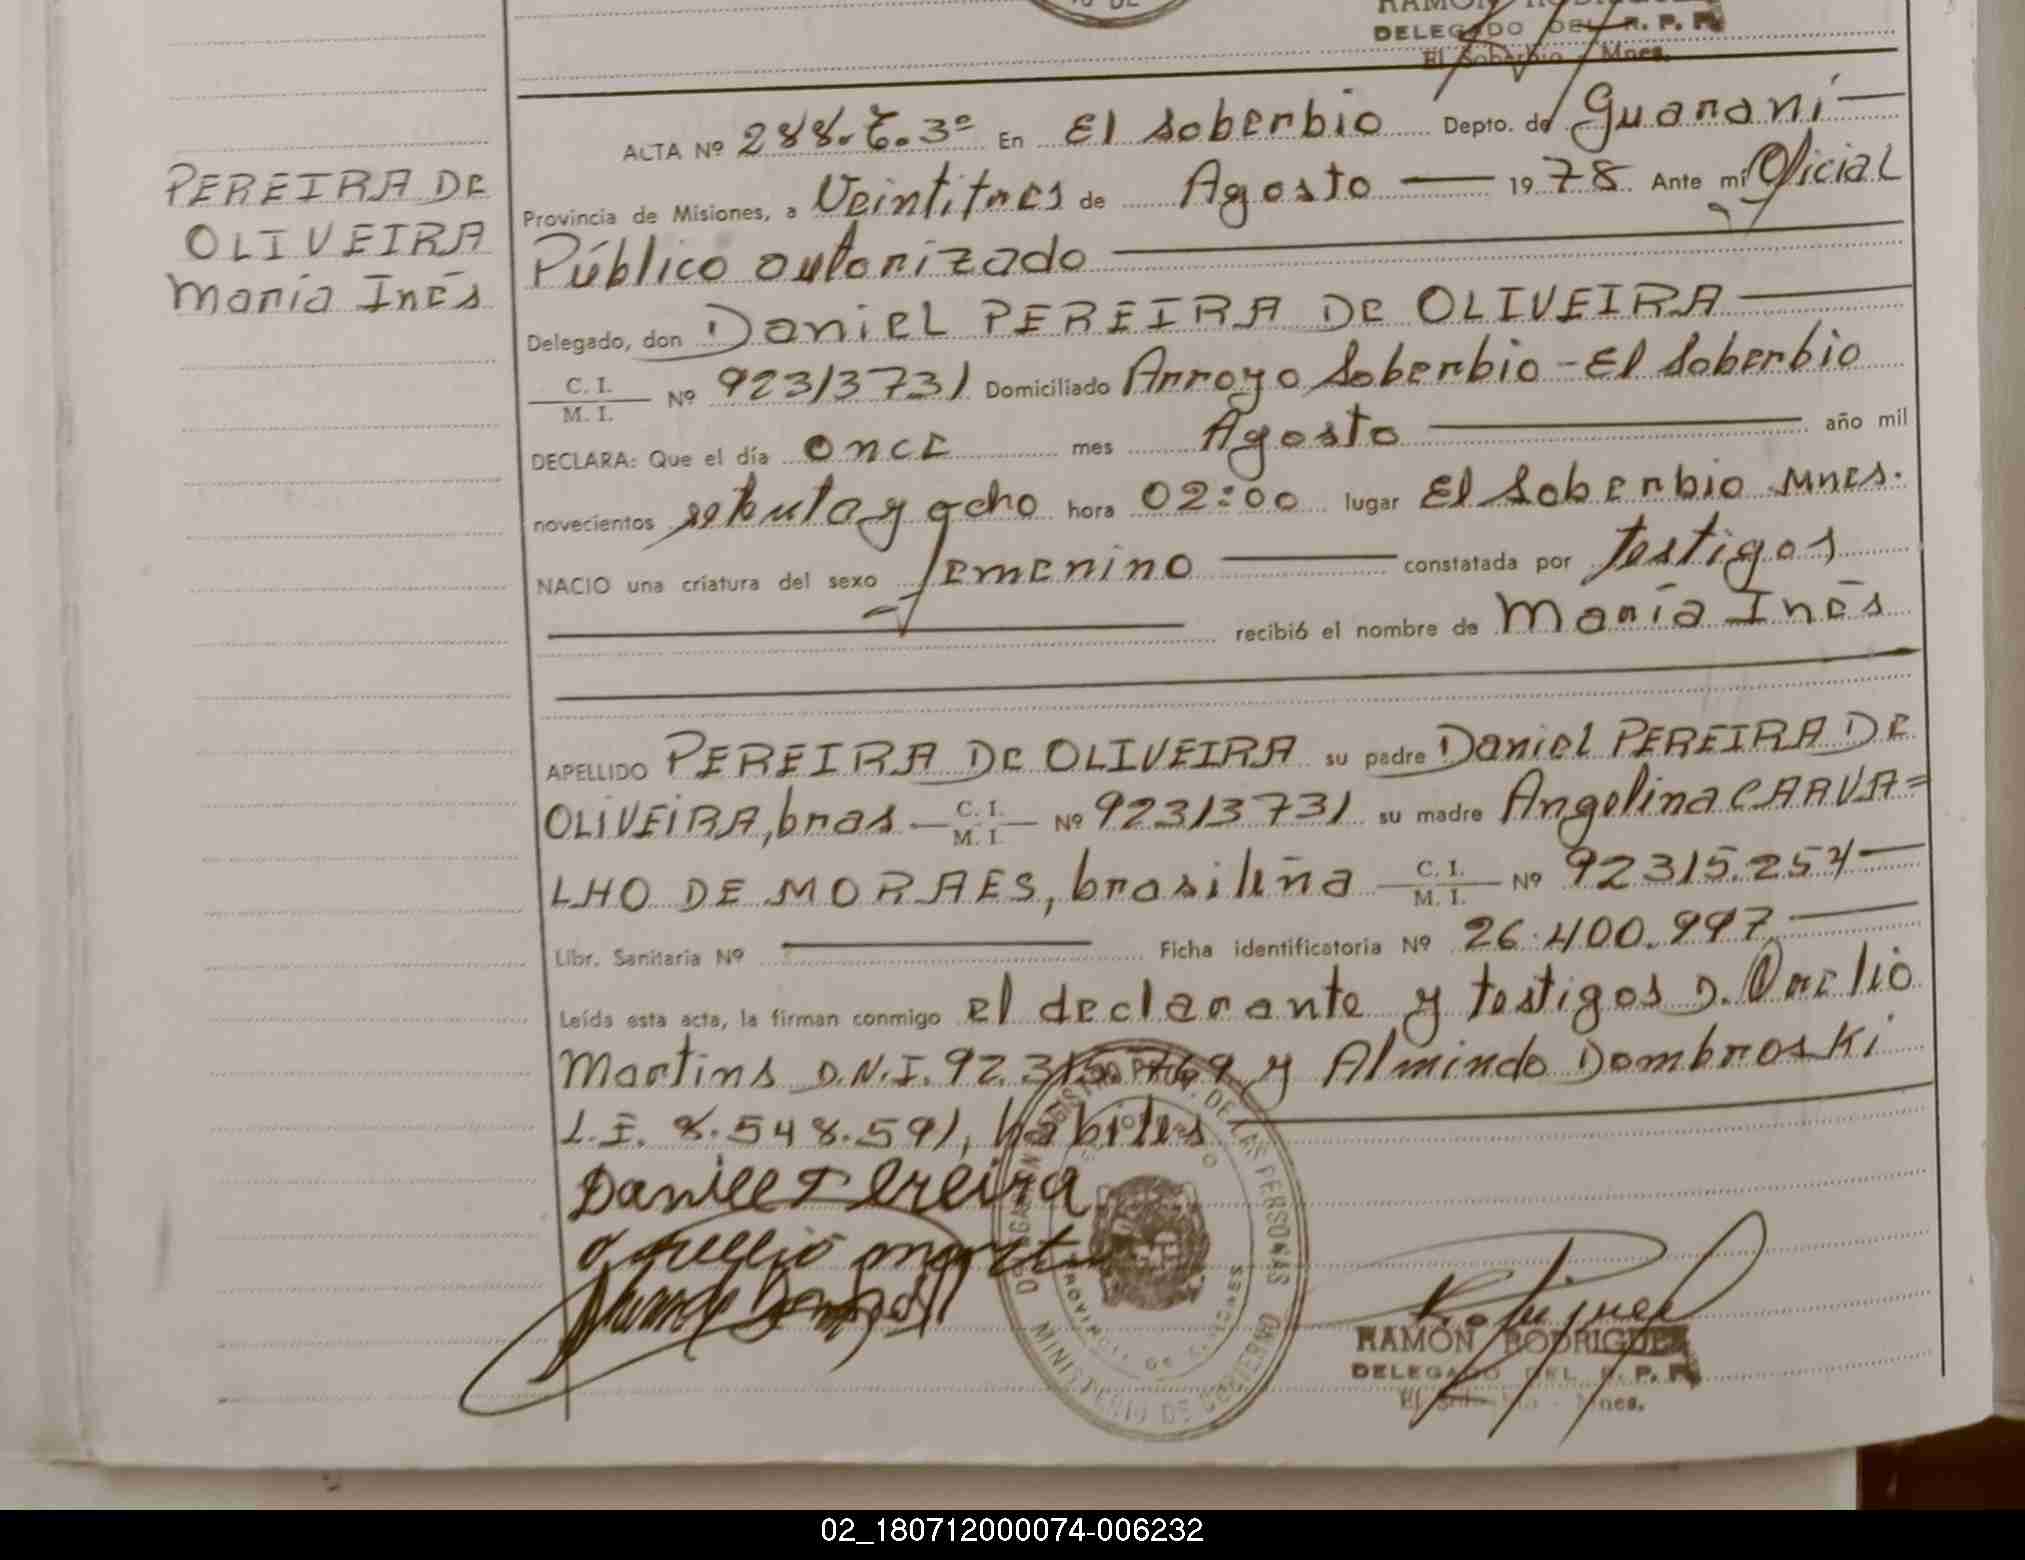 RAMÓN RODRIGUEZ
DELEGADO DEL R. P. P.
El Soberbio - Mnes.
PEREIRA DE
OLIVEIRA
María Inés
ALTA Nº 288. T. 3º En El Soberbio Depto. de Guaraní
Provincia de Misiones, a Veintitres de Agosto 1978 Ante mí Oficial
Público autorizado
Delegado, don Daniel PEREIRA DE OLIVEIRA
C. I. / M. I. Nº 92313731 Domiciliado Arroyo Soberbio - El Soberbio
DECLARA: Que el día once mes Agosto año mil
novecientos setenta y ocho hora 02:00 lugar El Soberbio Mnes.
NACIO una criatura del sexo femenino constatada por testigos
recibió el nombre de María Inés
APELLIDO PEREIRA DE OLIVEIRA su padre Daniel PEREIRA DE
OLIVEIRA, bras C. I. / M. I. Nº 92313731 su madre Angelina CARVA=
LHO DE MORAES, brasileña C. I. / M. I. Nº 92315.254
Libr. Sanitaria Nº Ficha identificatoria Nº 26.400.997
Leída esta acta, la firman conmigo el declarante y testigos D.
Martins D.N.I. 92.315.769 y Almindo Dombroski
L.E. 8.548.591, hábiles
Daniel Pereira
RAMÓN RODRIGUEZ
DELEGADO DEL R. P. P.
El Soberbio - Mnes.
DE LAS PERSONAS
MINISTERIO DE GOBIERNO
PROVINCIA DE MISIONES
02_180712000074-006232